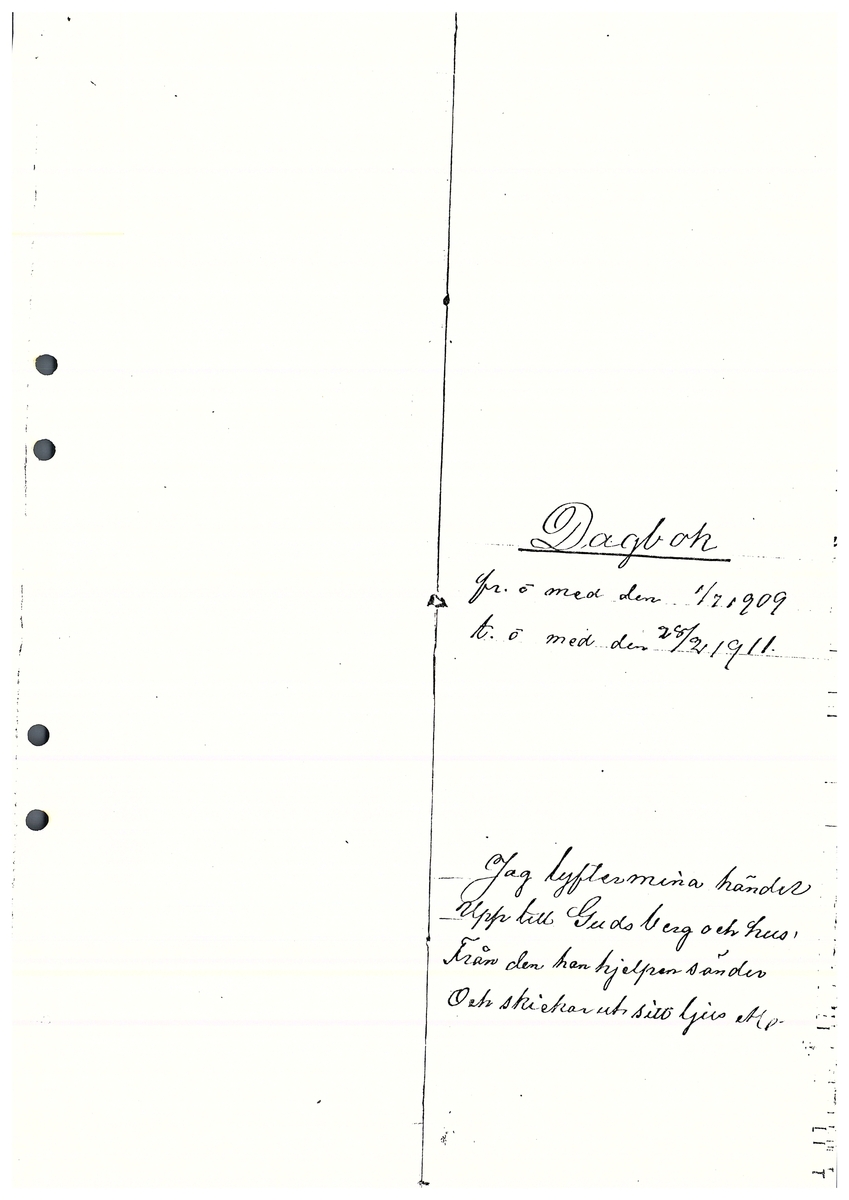 Dagbok
fr. o med den 1/7 1909
t. o med den 28/2 1911.
Jag lyfter mina händer
Upp till Guds berg och hus,
Från den han hjelpen sänder
Och skickar ut sitt ljus